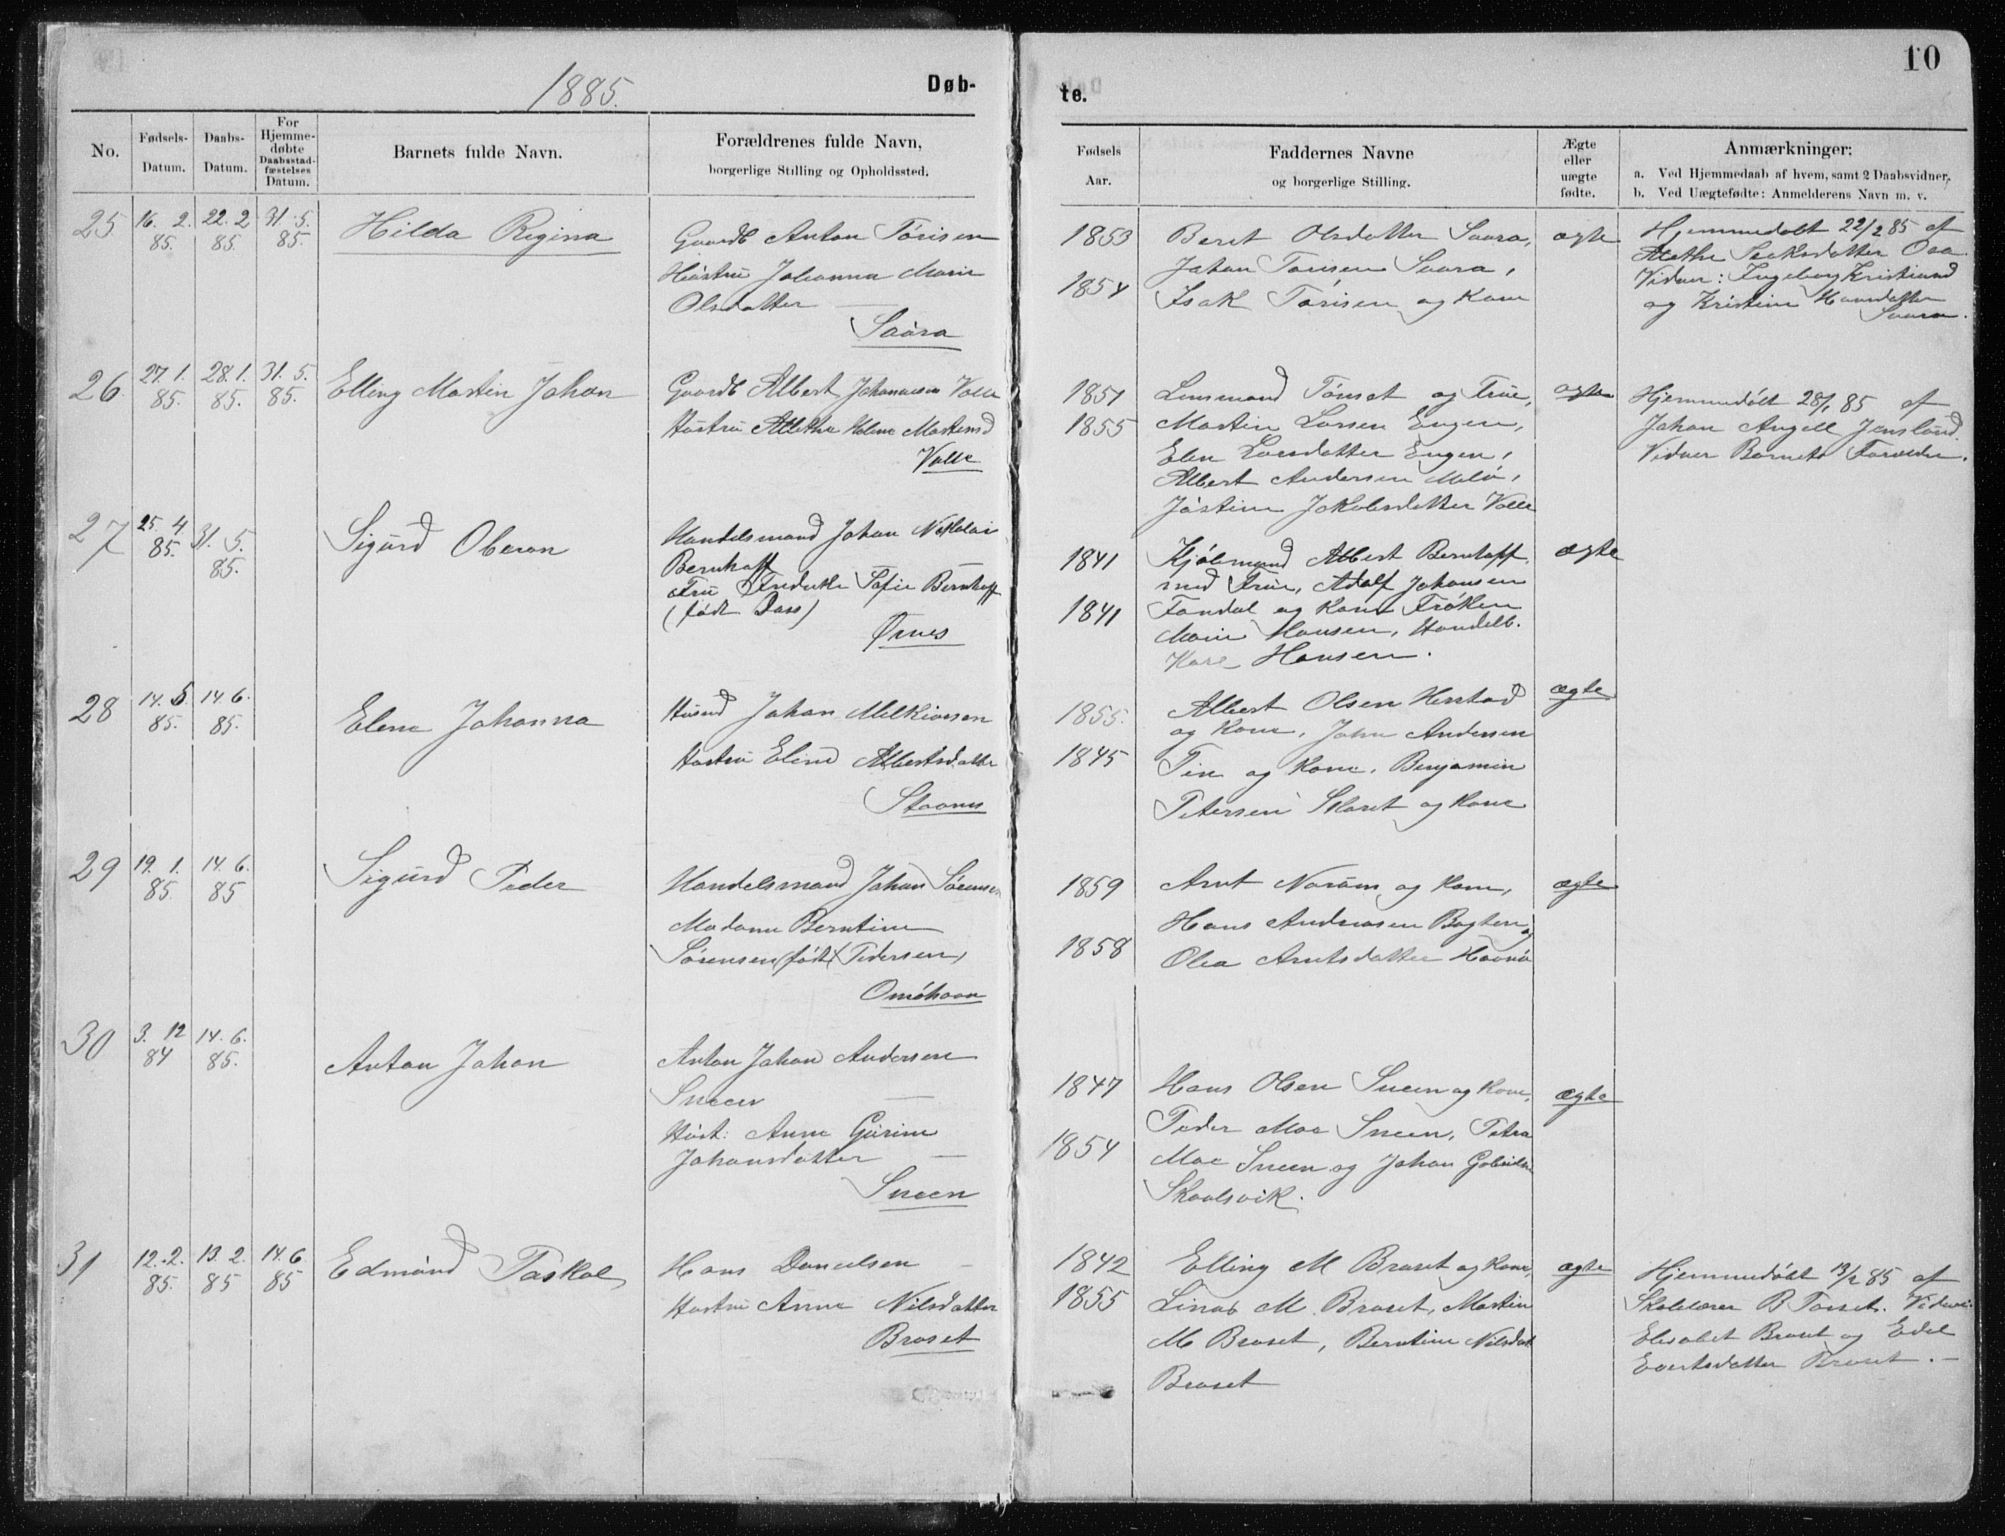 1885.
Døb-
No.
Fødsels-
Datum.
Daabs-
Datum.
For
Hjemme-
døbte
Daabsstad-
fæstelses
Datum.
Barnets fulde Navn.
Forældrenes fulde Navn,
borgerlige Stilling og Opholdssted.
25
16. 2. 22. 2 31. 5.
85. 85 85.
Hilda Regina
Gaardb Anton Tørisen
Hustru Johanna Marie
Olsdatter
Saura
26
27. 1. 28. 1. 31. 5.
85. 85. 85.
Elling Martin Johan
Gaardb Albert Johannesen Valle
Hustru Alethe Helene Martensd
Valle
27
25. 4 31. 5.
85. 85.
Sigurd Oberon
Handelsmand Johan Nikolai
Bernhoff
Fru Fredrikke Sofie Bernhoff
(født Dass)
Ørnes
28
14. 5 14. 6.
85. 85.
Elene Johanna
Husmd Johan Melkiorsen
Hustru Elend Albertsdatter
Stavnes
29
19. 1. 14. 6.
85. 85
Sigurd Peder
Handelsmand Johan Sørensen
Madame Berntine
Sørensen (født Pedersen)
Omøhavn
30
3. 12 14. 6.
84 85.
Anton Johan
Anton Johan Andersen
Sneen
Hust: Anne Gurine
Johansdatter
Sneen
31
12. 2. 13. 2 14. 6
85. 85 85
Edmund Paskal
Hans Danielsen
Hustru Anne Nilsdatter
Braset
10
te.
Fødsels
Aar.
Faddernes Navne
og borgerlige Stilling.
Ægte
eller
uægte
fødte.
Anmærkninger:
a. Ved Hjemmedaab af hvem, samt 2 Daabsvidner,
b. Ved Uægtefødte: Anmelderens Navn m. v.
1853
1854
Beret Olsdatter Saura,
Johan Tørisen Saura,
Isak Tørisen og Kone
ægte
Hjemmedøbt 22/2 85 af
Alethe
Vidner: Ingeborg Kristiansd
og Kristine Hansdatter
Saura.
1851
1855
Lensmand Tønset og Frue,
Martin Larsen Engen,
Elen Larsdatter Engen,
Albert Andersen Meløi,
Justine Jakobsdatter Valle
ægte
Hjemmedøbt 28/1 85 af
Johan Angell Jenslund.
Vidner Barnets Forældre.
1841
1841
Kjøbmand Albert Bernhoff
med Frue, Adolf Johansen
Fondal og Kone Frøken
Marie Hansen, Handelb.
Karl Hansen.
ægte
1855.
1845
Albert Olsen Herstad
og Kone, John Andersen
og Kone, Benjamin
Petersen Skaret og Kone
ægte
1859
1858
Arnt Norum og Kone,
Hans Andreasen Bagten og
Olea Arntsdatter Havnø
ægte
1847
1854
Hans Olsen Sneen og Kone,
Peder Moe Sneen, Petra
Moe Sneen og Johan Gabrielsen
Skaalsvik.
ægte
1842
1855
Elling M Braset og Kone,
Linus M. Braset, Martin
M Braset, Berntine Nilsdat
Braset
ægte
Hjemmedøbt 13/2 85 af
Skolelærer B Torset. Vidner:
Elisabet Braset og Edel
Evertsdatter Braset.